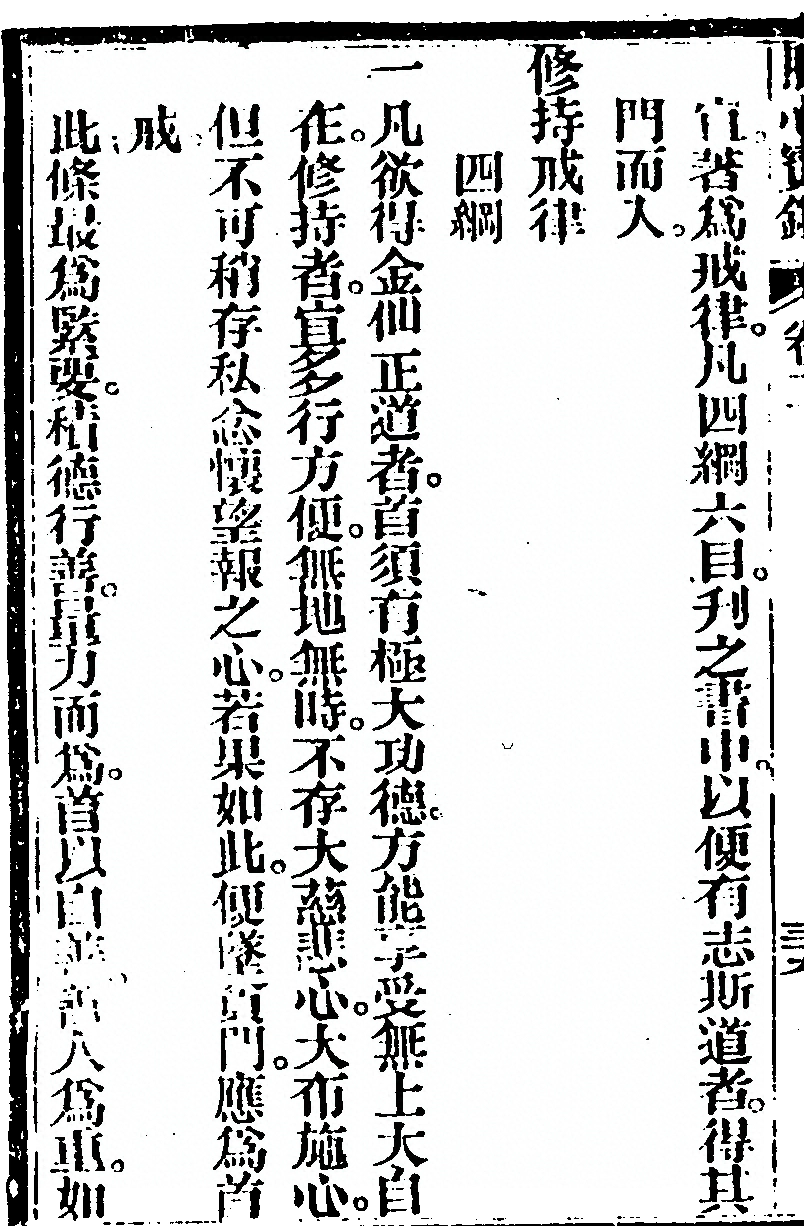 宜著爲戒律。凡四綱六目。刋之書中。以便有志斯道者。得其
門而入。
修持戒律
四綱
一凡欲得金仙正道者。首須有極大功德。方能享受無上大自
在。修持者。宜多多行方便。無地無時。不存大慈悲心。大布施心。
但不可稍存私念。懷望報之心。若果如此。便墜旁門。應爲首
戒。
此條最爲緊要。積德行善。量力而爲。首以自善善人爲重。如